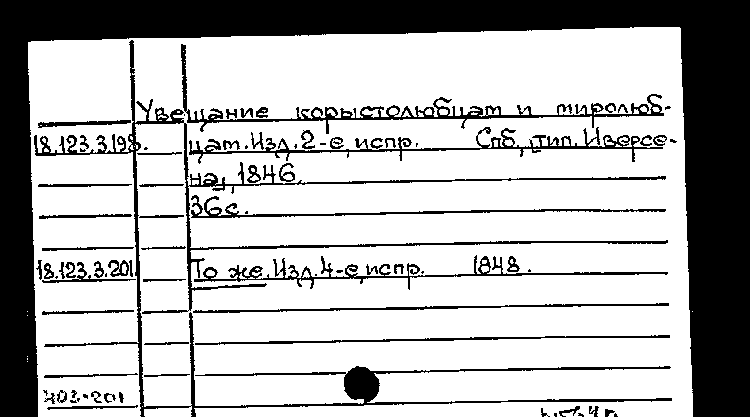 Увещание корыстолюбцам и миролюб-
18.123.3.198. цам. Изд. 2-е, испр. Спб, тип. Иверсе-
на, 1846.
36с.
18.123.3.201 То же. Изд. 4-е, испр. 1848.